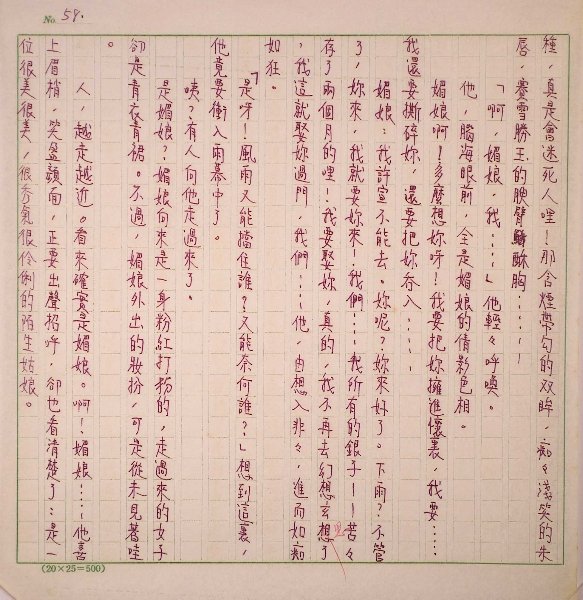 No. 59.
種，真是會迷死人哩！那含煙帶勾的双眸，痴々淺笑的朱
唇，賽雪勝玉的腴臂酥胸……！
「啊，媚娘，我……」他輕々呼喚。
他，腦海眼前，全是媚娘的倩影色相。
媚娘啊！多麼想妳呀！我要把妳擁進懷裏，我要……
我還要撕碎妳，還要把妳吞入……
媚娘：我許宣不能去。妳呢？妳來好了。下雨？不管
了，妳來，我就要妳來！我們……我所有的銀子！！苦々
存了兩個月的哩！我要娶妳，真的，我不再去幻想玄想了
，我這就娶妳過門，我們……他，由想入非々，進而如痴
如狂。
「是呀！風雨又能擋住誰？又能奈何誰？」想到這裏，
他竟要衝入雨幕中了。
咦？有人向他走過來了。
是媚娘？媚娘向來是一身粉紅打扮的，走過來的女子
卻是青衣青裙。不過，媚娘外出的妝扮，可是從未見著哇
。
人，越走越近。看來確實是媚娘。啊！媚娘……他喜
上眉梢，笑盈顏面，正要出聲招呼，卻也看清楚了：是一
位很美很美，很秀氣很伶俐的陌生姑娘。
(20×25=500)